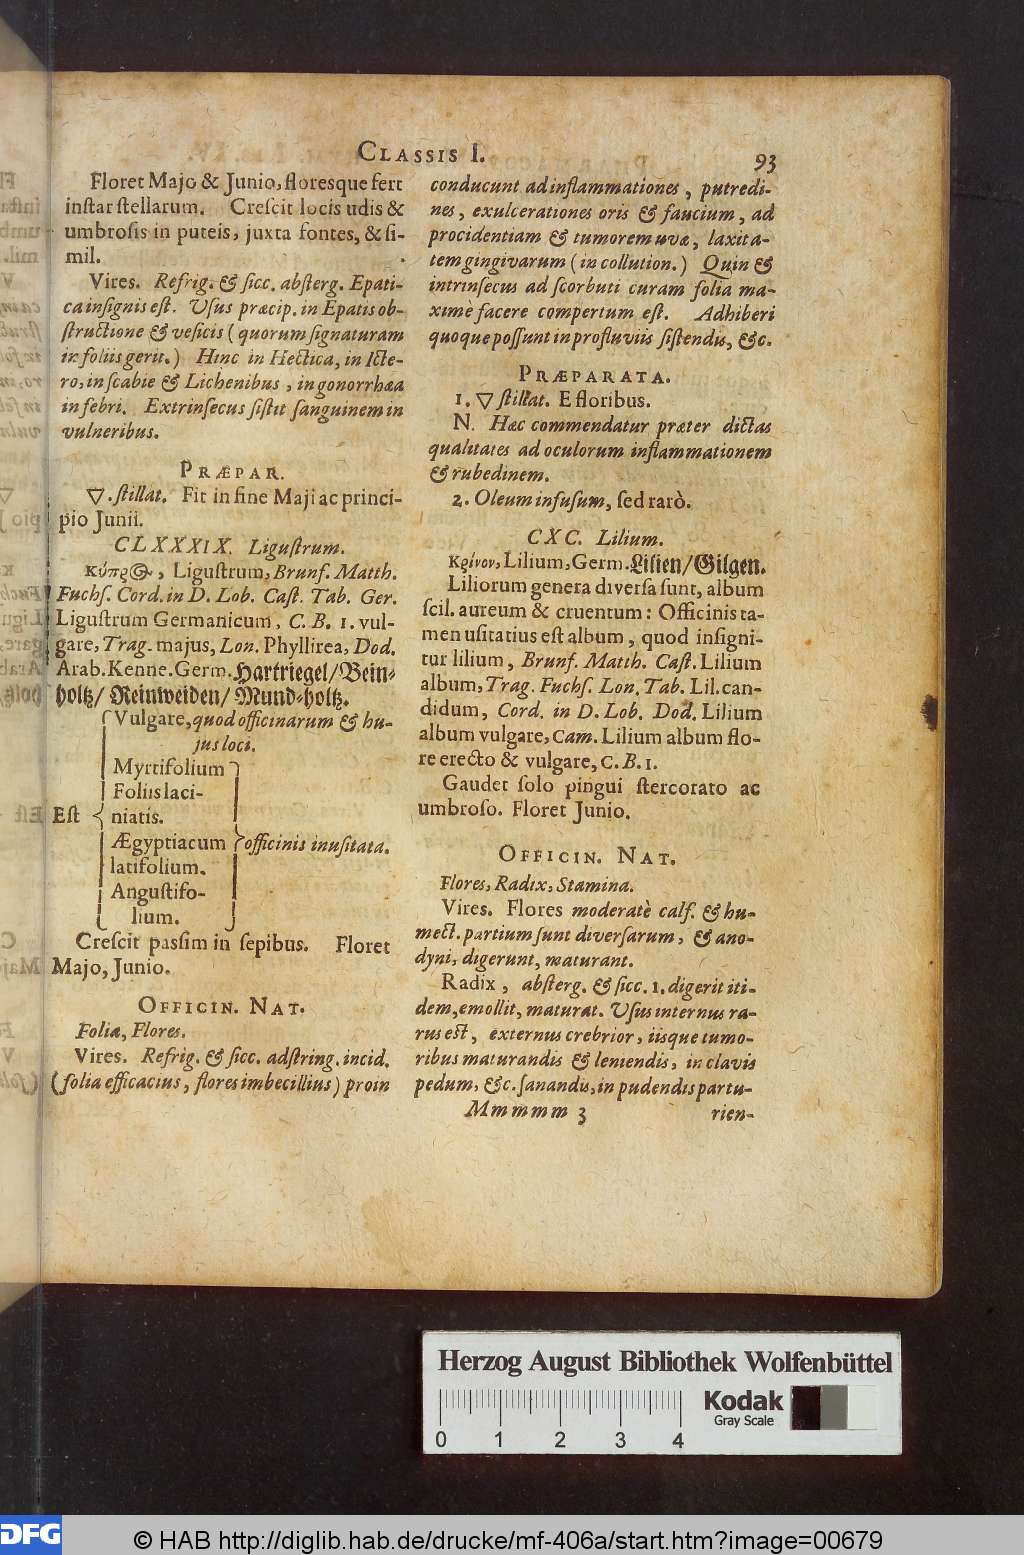 CLASSIS I.
93
Floret Majo & Junio, floresque fert
instar stellarum. Crescit locis udis &
umbrosis in puteis, juxta fontes, & si-
mil.
Vires. Refrig. & sicc. absterg. Epati-
ca insignis est. Vsus præcip. in Epatis ob-
structione & vesicis (quorum signaturam
in foliis gerit.) Hinc in Hectica, in Icte-
ro, in scabie & Lichenibus, in gonorrhæa
in febri. Extrinsecus sistit sanguinem in
vulneribus.
PRÆPAR.
▽. stillat. Fit in fine Maji ac princi-
pio Junii.
CLXXXIX. Ligustrum.
Ligustrum, Brunf. Matth.
Fuchs. Cord. in D. Lob. Cast. Tab. Ger.
Ligustrum Germanicum, C. B. 1. vul-
gare, Trag. majus, Lon. Phyllirea, Dod.
Arab. Kenne. Germ. Hartriegel/ Bein-
holtz/ Reinweiden/ Mund-holtz.
Vulgare, quod officinarum & hu-
jus loci.
Myrtifolium
Foliis laci-
Est niatis.
Ægyptiacum officinis inusitata.
latifolium.
Angustifo-
lium.
Crescit passim in sepibus. Floret
Majo, Junio.
OFFICIN. NAT.
Folia, Flores.
Vires. Refrig. & sicc. adstring. incid.
(folia efficacius, flores imbecillius) proin
conducunt ad inflammationes, putredi-
nes, exulcerationes oris & faucium, ad
procidentiam & tumorem uvæ, laxita-
tem gingivarum (in collution.) Quin &
intrinsecus ad scorbuti curam folia ma-
ximè facere compertum est. Adhiberi
quoque possunt in profluviis sistendis, &c.
PRÆPARATA.
1. ▽ stillat. E floribus.
N. Hæc commendatur præter dictas
qualitates ad oculorum inflammationem
& rubedinem.
2. Oleum infusum, sed rarò.
CXC. Lilium.
Κρίνον, Lilium, Germ. Lilien/ Gilgen.
Liliorum genera diversa sunt, album
scil. aureum & cruentum: Officinis ta-
men usitatius est album, quod insigni-
tur lilium, Brunf. Matth. Cast. Lilium
album, Trag. Fuchs. Lon. Tab. Lil. can-
didum, Cord. in D. Lob. Dod. Lilium
album vulgare, Cam. Lilium album flo-
re erecto & vulgare, C. B. 1.
Gaudet solo pingui stercorato ac
umbroso. Floret Junio.
OFFICIN. NAT.
Flores, Radix, Stamina.
Vires. Flores moderatè calf. & hu-
mect. partium sunt diversarum, & ano-
dyni, digerunt, maturant.
Radix, absterg. & sicc. 1. digerit iti-
dem, emollit, maturat. Vsus internus ra-
rus est, externus crebrior, iisque tumo-
ribus maturandis & leniendis, in clavis
pedum, &c. sanandis, in pudendis partu-
Mmmmm 3
rien-
Herzog August Bibliothek Wolfenbüttel
Kodak
Gray Scale
0 1 2 3 4
DFG
© HAB http://diglib.hab.de/drucke/mf-406a/start.htm?image=00679